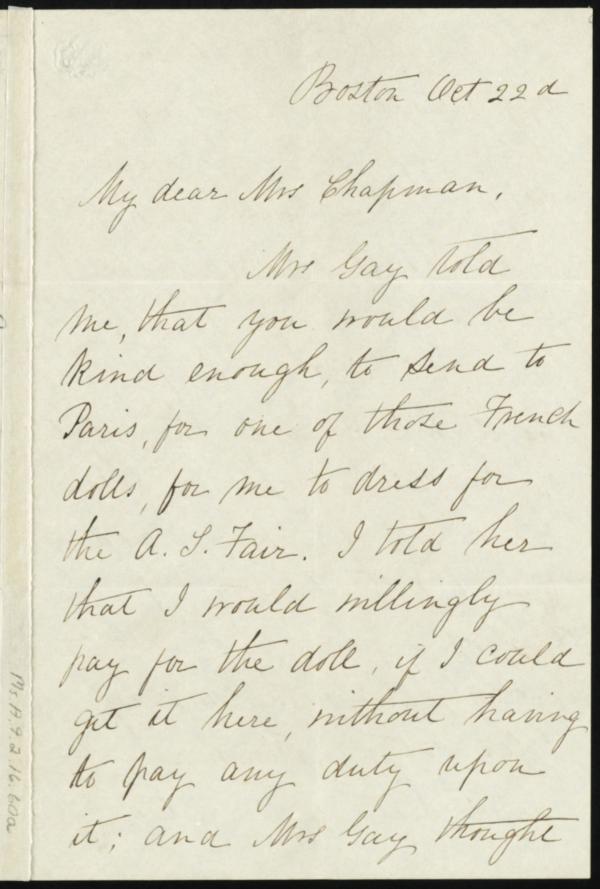 Boston Oct 22d
My dear Mrs Chapman,
Mrs Gay told
me, that you would be
kind enough, to send to
Paris, for one of those French
dolls, for me to dress for
the A. S. Fair. I told her
that I would willingly
pay for the doll, if I could
get it here, without having
to pay any duty upon
it; and Mrs Gay thought
Ms.A.9.2.16.60a